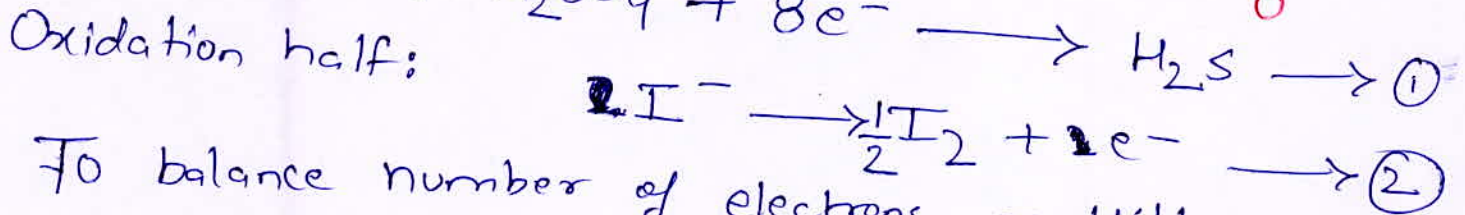 + 8e⁻ ⟶ H₂S ⟶ ①
Oxidation half:
I⁻ ⟶ ½I₂ + 1e⁻ ⟶ ②
To balance number of electrons